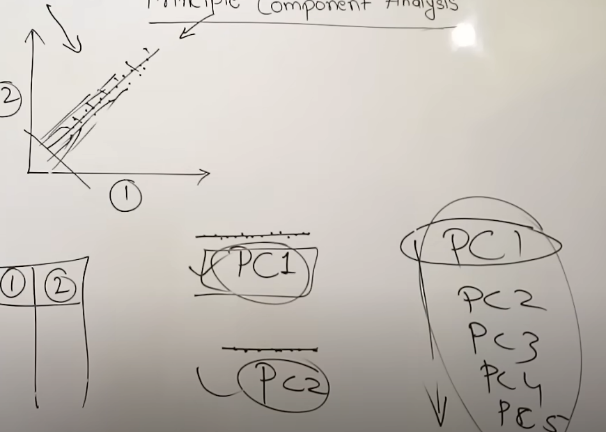 Principle Component Analysis
2
1
1 2
PC1
PC2
PC1
PC2
PC3
PC4
PC5